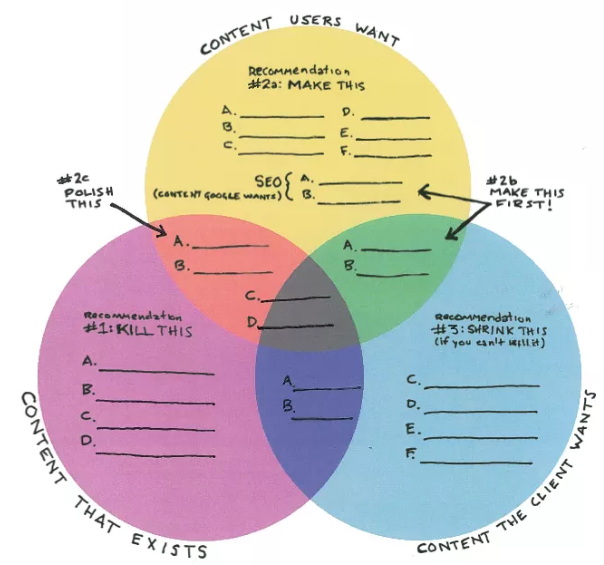 CONTENT USERS WANT
Recommendation
#2a: MAKE THIS
A.
B.
C.
D.
E.
F.
SEO { A.
(CONTENT GOOGLE WANTS) B.
#2c
POLISH
THIS
#2b
MAKE THIS
FIRST!
A.
B.
A.
B.
C.
D.
Recommendation
#1: KILL THIS
A.
B.
C.
D.
A.
B.
Recommendation
#3: SHRINK THIS
(if you can't kill it)
C.
D.
E.
F.
CONTENT THAT EXISTS
CONTENT THE CLIENT WANTS